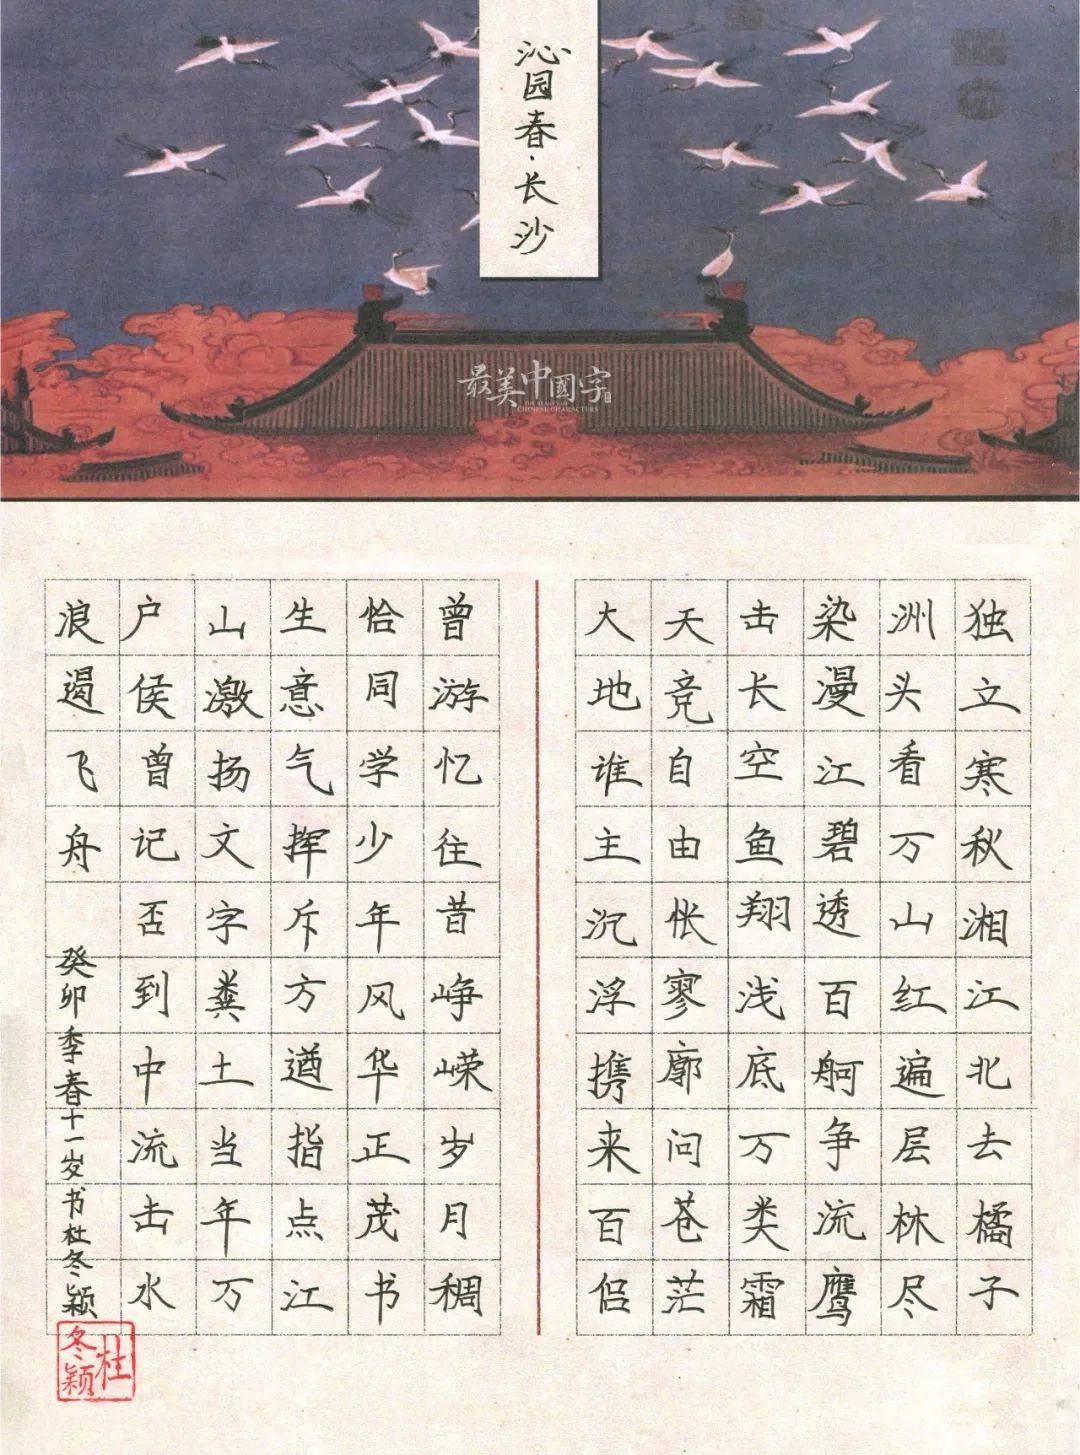 沁园春·长沙
最美中國字
THE BEAUTY OF
CHINESE CHARACTERS
独立寒秋湘江北去橘子
洲头看万山红遍层林尽
染漫江碧透百舸争流鹰
击长空鱼翔浅底万类霜
天竞自由怅寥廓问苍茫
大地谁主沉浮携来百侣
曾游忆往昔峥嵘岁月稠
恰同学少年风华正茂书
生意气挥斥方遒指点江
山激扬文字粪土当年万
户侯曾记否到中流击水
浪遏飞舟
癸卯季春十一岁书杜冬颖
杜冬颖